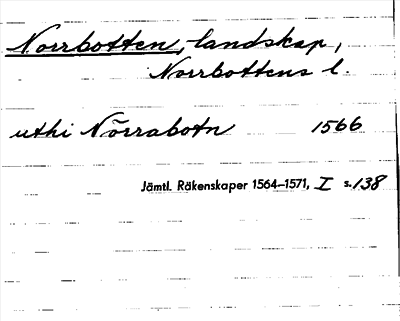 Norrbotten, landskap,
Norrbottens l.
uthi Nörrabotn 1566
Jämtl. Räkenskaper 1564–1571, I s. 138